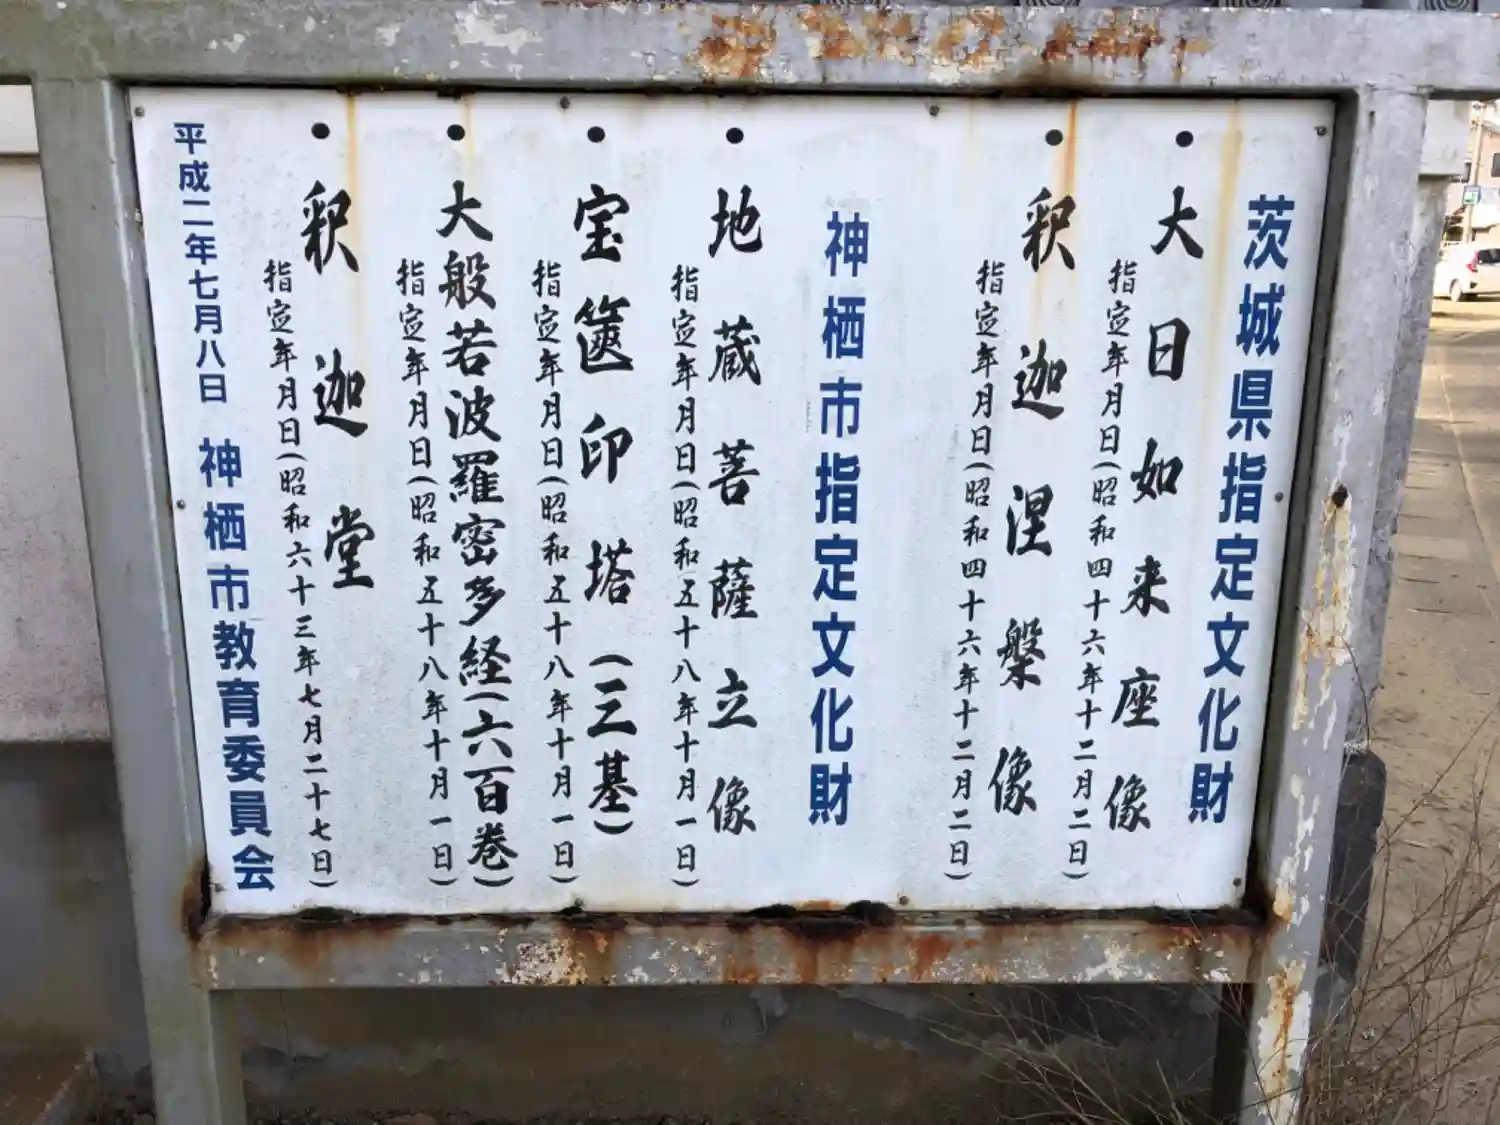 茨城県指定文化財
●大日如来座像
指定年月日(昭和四十六年十二月二日)
●釈迦涅槃像
指定年月日(昭和四十六年十二月二日)
神栖市指定文化財
●地蔵菩薩立像
指定年月日(昭和五十八年十月一日)
●宝篋印塔(三基)
指定年月日(昭和五十八年十月一日)
●大般若波羅密多経(六百巻)
指定年月日(昭和五十八年十月一日)
●釈迦堂
指定年月日(昭和六十三年七月二十七日)
平成二年七月八日 神栖市教育委員会